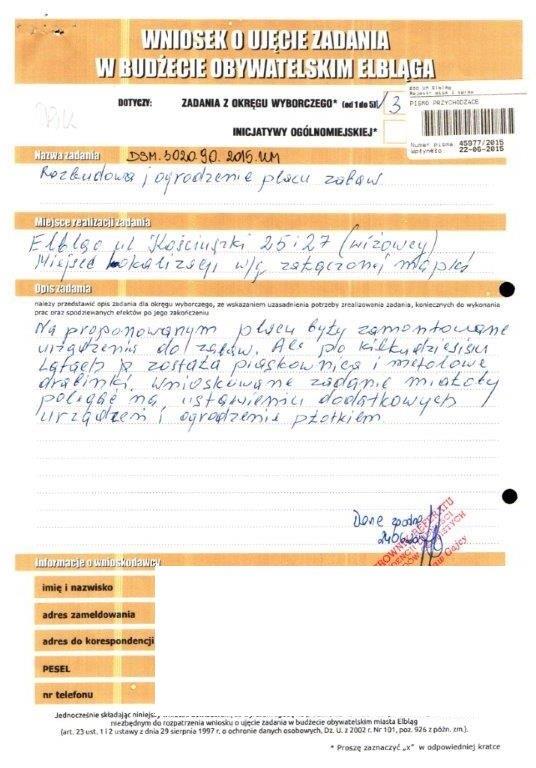 WNIOSEK O UJĘCIE ZADANIA
W BUDŻECIE OBYWATELSKIM ELBLĄGA
DOTYCZY: ZADANIA Z OKRĘGU WYBORCZEGO* (od 1 do 5) 3
INICJATYWY OGÓLNOMIEJSKIEJ*
PISMO PRZYCHODZĄCE
Numer pisma 45977/2015
Wpłynęło 22-06-2015
Nazwa zadania DSM.5020.90.2015.UM
Rozbudowa i ogrodzenie placu zabaw
Miejsce realizacji zadania
Elbląg ul Kościuszki 25 i 27 (wiżowcy)
Miejsce lokalizacji w/g załączonej mapki
Opis zadania
należy przedstawić opis zadania dla okręgu wyborczego, ze wskazaniem uzasadnienia potrzeby zrealizowania zadania, koniecznych do wykonania
prac oraz spodziewanych efektów po jego zakończeniu
Na proponowanym placu były zamontowane
urządzenia do zabaw. Ale po kilkudziesięciu
latach została piaskownica i metalowe
drabinki. Wnioskowane zadanie miałoby
polegać na ustawieniu dodatkowych
urządzeń i ogrodzenie płotkiem
Dane zgodne
Informacje o wnioskodawcy
imię i nazwisko
adres zameldowania
adres do korespondencji
PESEL
nr telefonu
Jednocześnie składając niniejszy
niezbędnym do rozpatrzenia wniosku o ujęcie zadania w budżecie obywatelskim miasta Elbląg
(art. 23 ust. 1 i 2 ustawy z dnia 29 sierpnia 1997 r. o ochronie danych osobowych, Dz. U. z 2002 r. Nr 101, poz. 926 z późn. zm.).
* Proszę zaznaczyć „x" w odpowiedniej kratce